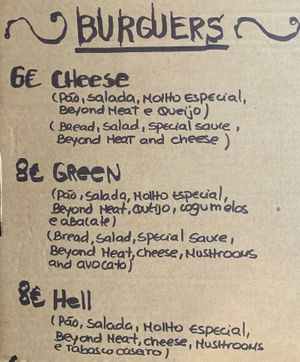 BURGUERS
6€ CHEESE
(Pão, Salada, Molho Especial,
Beyond Meat e Queijo)
(Bread, Salad, Special Sauce,
Beyond Meat and cheese)
8€ GREEN
(Pão, Salada, Molho Especial,
Beyond Meat, Queijo, cogumelos
e abacate)
(Bread, Salad, Special Sauce,
Beyond Meat, cheese, MUSHROOMS
and avocato)
8€ Hell
(Pão, Salada, Molho Especial,
Beyond Meat, cheese, MUSHROOMS
e Tabasco caseiro)